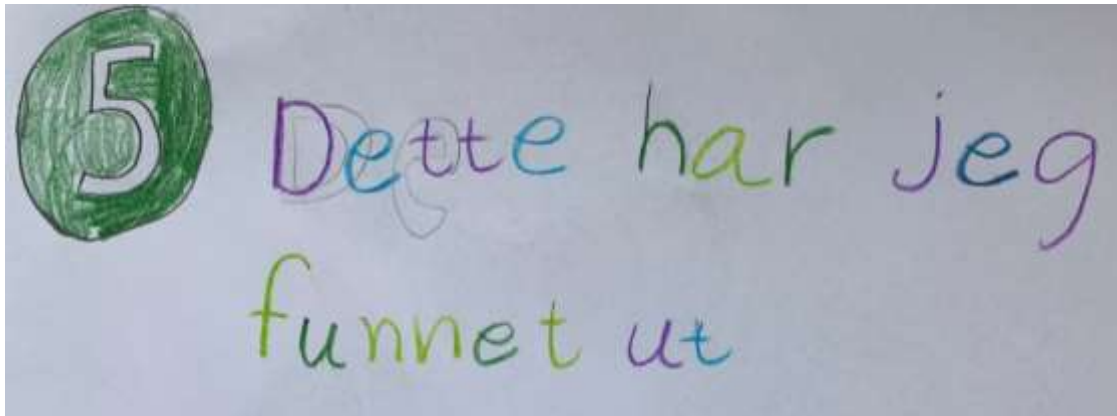 5 Dette har jeg
funnet ut